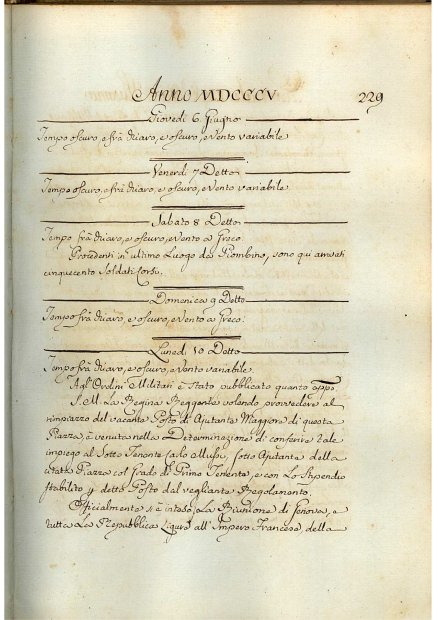 Anno MDCCCV 229
Giovedì 6 Giugno
Tempo oscuro, e frà chiaro, e oscuro, e Vento variabile.
Venerdì 7 Detto
Tempo oscuro, e frà chiaro, e oscuro, e Vento variabile.
Sabato 8 Detto
Tempo frà chiaro, e oscuro, e Vento a Greco.
Procedenti in ultimo Luogo da Piombino, sono quì arrivati
cinquecento Soldati Corsi.
Domenica 9 Detto
Tempo frà chiaro, e oscuro, e Vento a Greco.
Lunedì 10 Detto
Tempo frà chiaro, e oscuro, e Vento variabile.
Agl' Ordini Militari è stato pubblicato quanto
S. M. La Regina Reggente volendo provvedere al
rimpiazzo del vacante Posto di Ajutante Maggiore di questa
Piazza, è venuta nella Determinazione di conferire tale
impiego al Sotto Tenente Carlo, sotto Ajutante della
Piazza col Grado di Primo Tenente, e con Lo Stipendio
stabilito p detto Posto dal vegliante Regolamento.
Officialmente si è intesa La Riunione di Genova, e
tutta La Repubblica Ligure all' Impero Francese, della